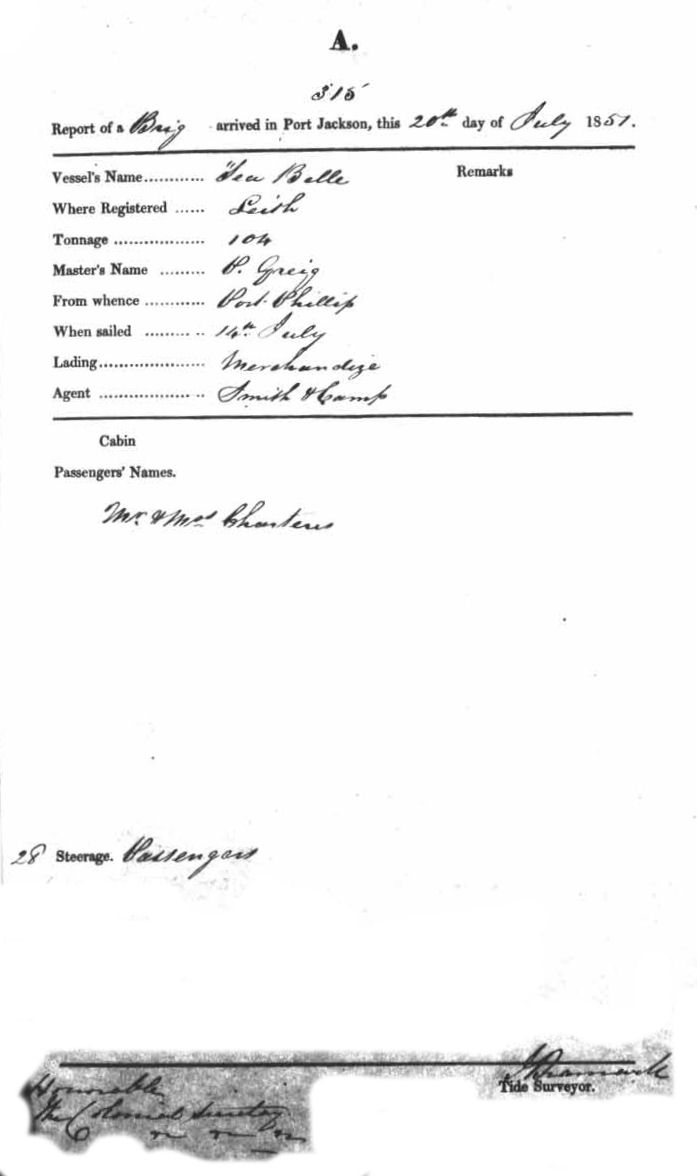 A.
315
Report of a Brig arrived in Port Jackson, this 20th day of July 1851.
Vessel's Name ............ Sea Belle Remarks
Where Registered ...... Leith
Tonnage .................. 104
Master's Name ......... P. Greig
From whence ............ Port Phillip
When sailed ......... .. 14th July
Lading..................... Merchandize
Agent .................. .. Smith & Camp
Cabin
Passengers' Names.
Mr. & Mrs Charteris
28 Steerage. Passengers
Tide Surveyor.
Honorable
The Colonial Secretary